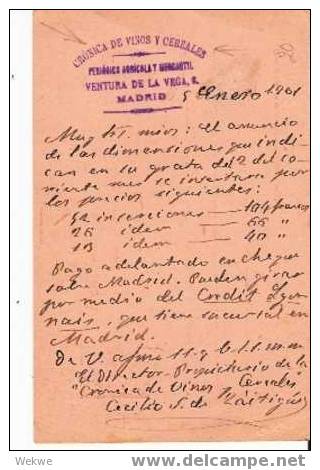 CRÓNICA DE VINOS Y CEREALES
PERIÓDICO AGRÍCOLA Y MERCANTIL
VENTURA DE LA VEGA,
MADRID
20
5 Enero 1901
Muy Srs. mios: el anuncio
de las dimensiones que indi
can en su grata del 2 del co
rriente mes se insertara por
los precios siguientes:
52 inserciones — 104 francos
26 idem — 66 "
13 idem — 40 "
Pago adelantado en cheque
sobre Madrid. Pueden girar
por medio del Credit Lyon
nais, que tiene sucursal en
Madrid.
De V. afmo s. s. q. b. s. m.
El Director Propietario de la
"Crónica de Vinos y Cereales"
Cecilio S. de Záitigui
Wekwe
delcampe.net